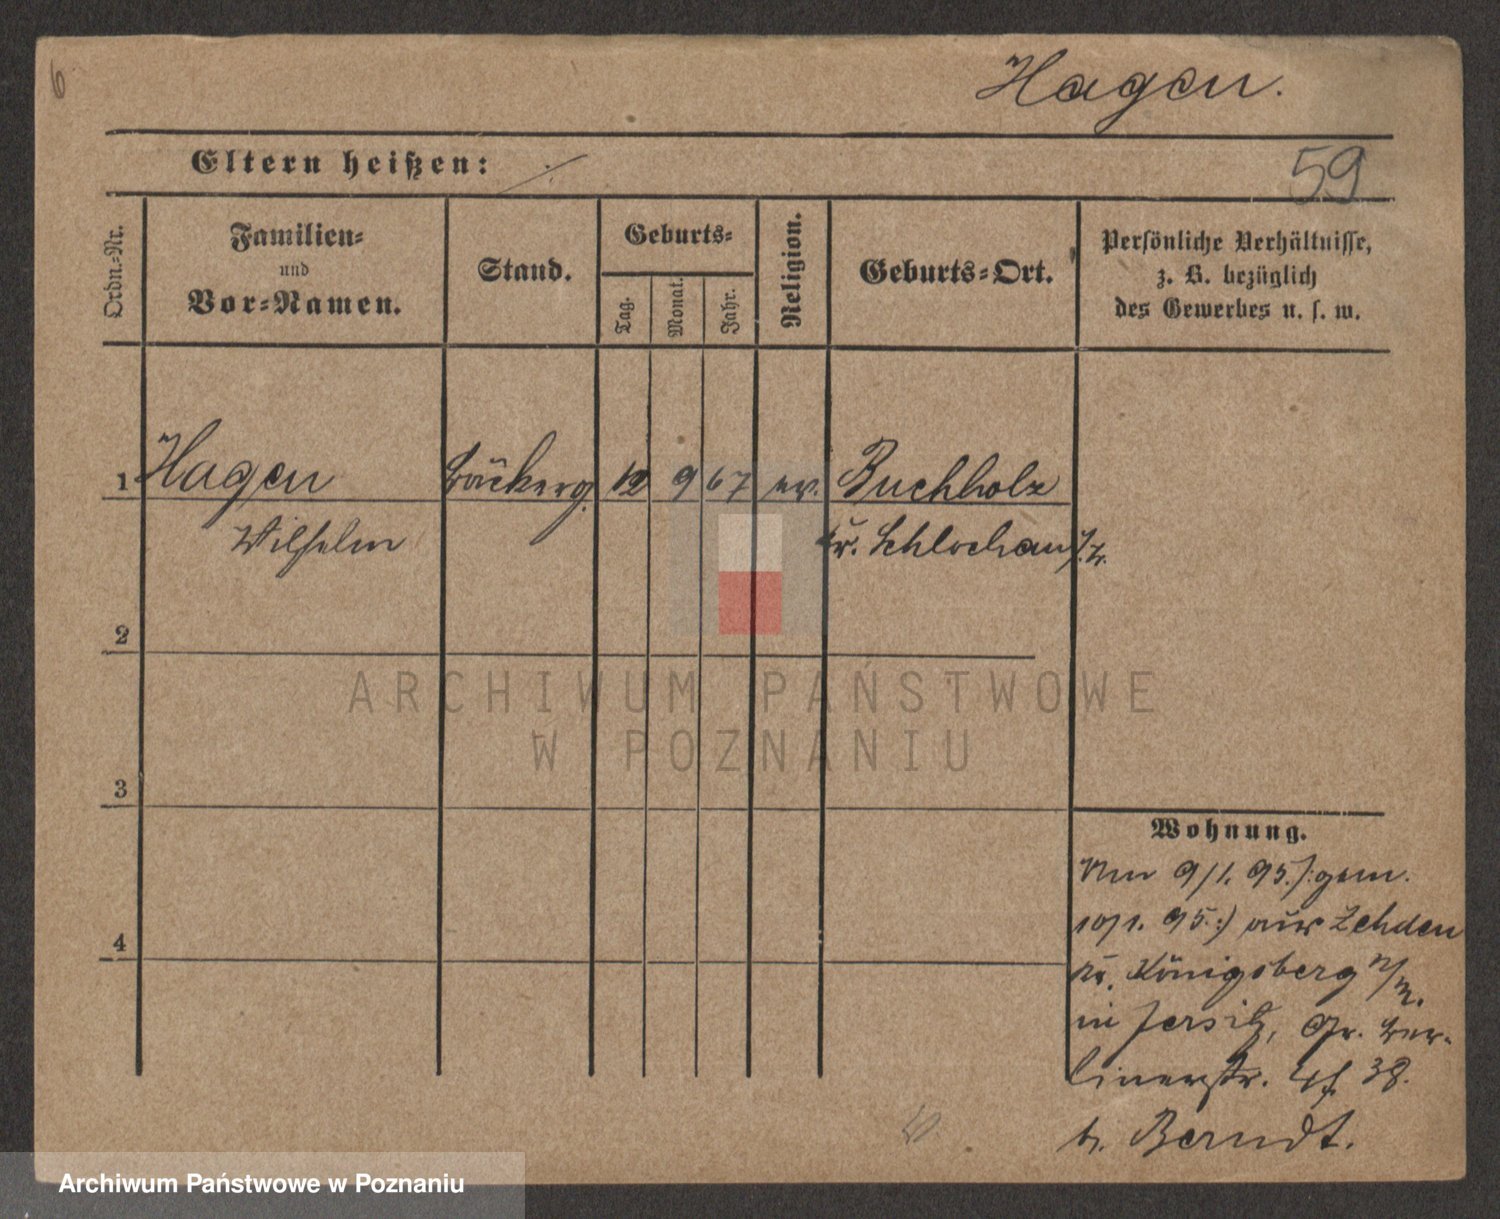 6
Hagen.
Eltern heißen: ./.
59
Ordn.-Nr.
Familien-
und
Vor-Namen.
Stand.
Geburts-
Tag.
Monat.
Jahr.
Religion.
Geburts-Ort.
Persönliche Verhältnisse,
z. B. bezüglich
des Gewerbes u. s. w.
1 Hagen Bäckerg. 12 9 67 ev. Buchholz
Wilhelm Kr. Schlochau
2
ARCHIWUM PAŃSTWOWE
W POZNANIU
3
Wohnung.
Am 9/1. 95 /: gem.
10/1. 95 :/ aus Zehden
Kr. Königsberg N/M.
in Jersitz, Gr. Ber-
linerstr. 38.
b. Berndt.
4
Archiwum Państwowe w Poznaniu